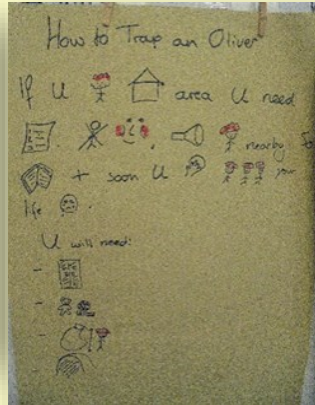 How to Trap an Oliver
If U area U need
nearby
+ soon U your
life
U will need:
-
-
-
-